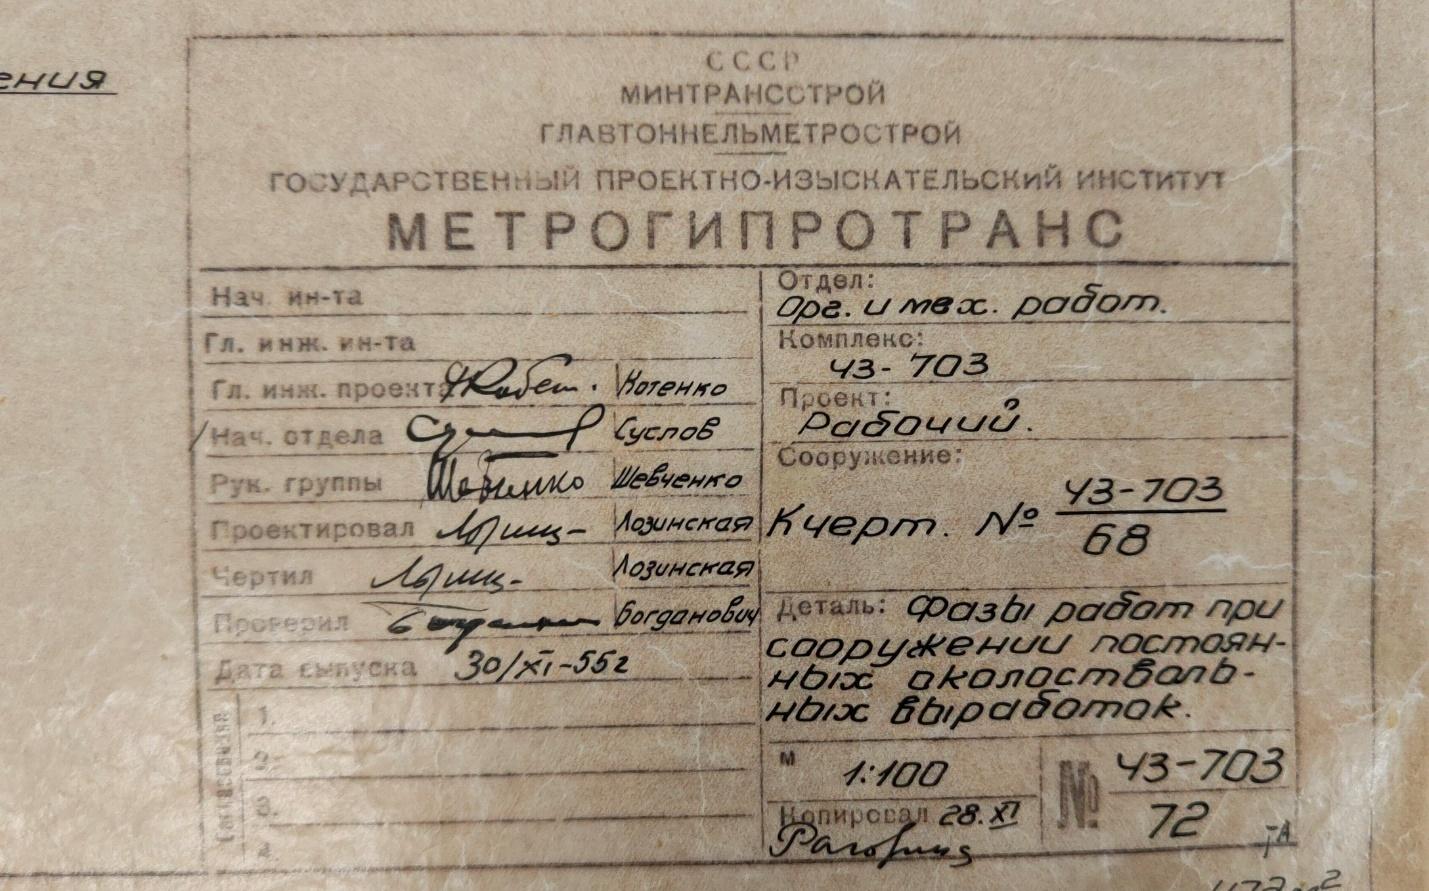 ения
СССР
МИНТРАНССТРОЙ
ГЛАВТОННЕЛЬМЕТРОСТРОЙ
ГОСУДАРСТВЕННЫЙ ПРОЕКТНО-ИЗЫСКАТЕЛЬСКИЙ ИНСТИТУТ
МЕТРОГИПРОТРАНС
Нач. ин-та
Гл. инж. ин-та
Гл. инж. проекта Котенко
Нач. отдела Суслов
Рук. группы Шевченко Шевченко
Проектировал Лозинская
Чертил Лозинская
Проверил Богданович
Дата выпуска 30/XI-55г
1.
2.
3.
4.
Отдел:
Орг. и мех. работ.
Комплекс:
ЧЗ-703
Проект:
Рабочий.
Сооружение:
К черт. № ЧЗ-703
68
Деталь: Фазы работ при
сооружении постоян-
ных околостволь-
ных выработок.
М 1:100
Копировал 28.XI
№ ЧЗ-703
72